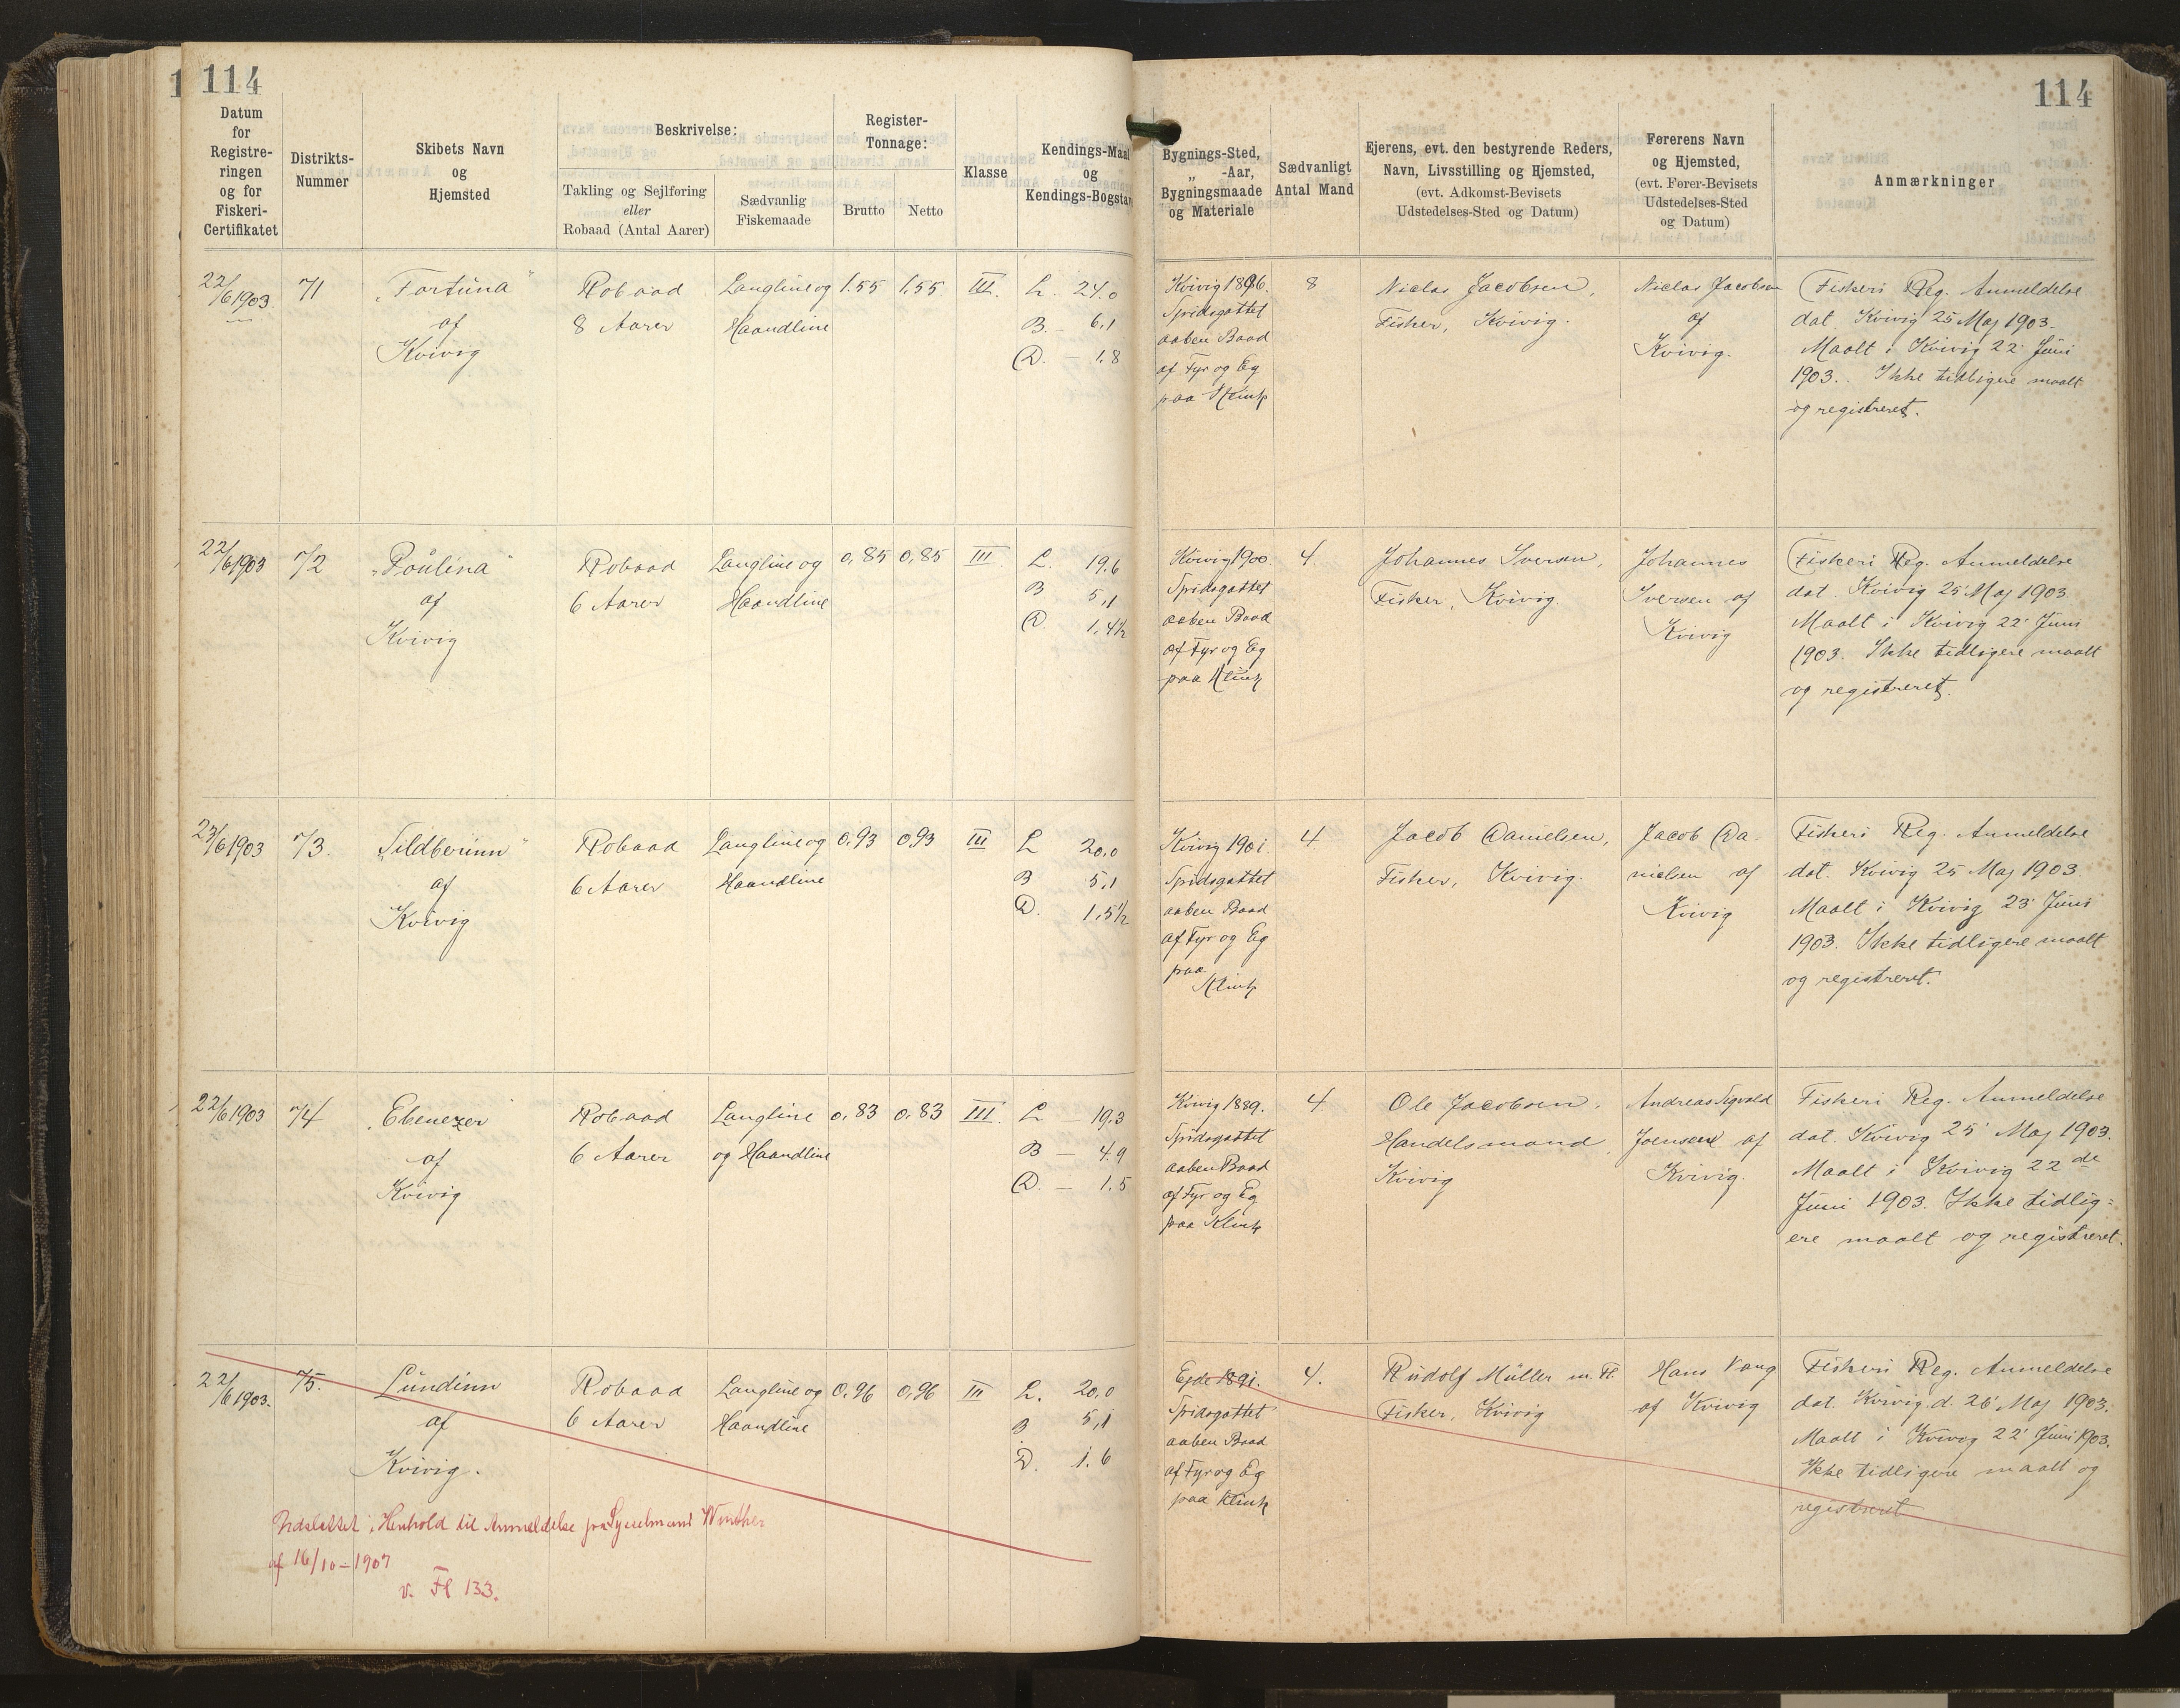 114
114
Datum
for
Registre-
ringen
og for
Fiskeri-
Certifikatet
Distrikts-
Nummer
Skibets Navn
og
Hjemsted
Beskrivelse:
Takling og Sejlføring
eller
Robaad (Antal Aarer)
Sædvanlig
Fiskemaade
Register-
Tonnage:
Brutto
Netto
Klasse
Kendings-Maal
og
Kendings-Bogstav
Bygnings-Sted,
„ -Aar,
Bygningsmaade
og Materiale
Sædvanligt
Antal Mand
Ejerens, evt. den bestyrende Reders,
Navn, Livsstilling og Hjemsted,
(evt. Adkomst-Bevisets
Udstedelses-Sted og Datum)
Førerens Navn
og Hjemsted,
(evt. Fører-Bevisets
Udstedelses-Sted
og Datum)
Anmærkninger
22/6 1903.
71
„Fortuna"
af
Kvivig
Robaad
8 Aarer
Langline og
Haandline
1.55
1,55
III.
L. 24.0
B. — 6,1
D. — 1.8
Kvivig 1896.
Spidsgattet
aaben Baad
af Fyr og Eg
paa Klink
8
Niclas Jacobsen,
Fisker, Kvivig.
Niclas Jacobsen
af
Kvivig.
Fiskeri Reg. Anmeldelse
dat. Kvivig 25 Maj 1903.
Maalt i Kvivig 22' Juni
1903. Ikke tidligere maalt
og registreret.
22/6 1903
72
„Paulina"
af
Kvivig
Robaad
6 Aarer
Langline og
Haandline
0,85
0,85
III.
L. 19.6
B 5,1
D. 1,4½
Kvivig 1900.
Spidsgattet
aaben Baad
af Fyr og Eg
paa Klink
4.
Johannes Iversen,
Fisker, Kvivig.
Johannes
Iversen af
Kvivig
Fiskeri Reg. Anmeldelse
dat. Kvivig 25' Maj 1903.
Maalt i Kvivig 22' Juni
1903. Ikke tidligere maalt
og registreret.
23/6 1903
73.
„Sildberinn"
af
Kvivig
Robaad
6 Aarer
Langline og
Haandline
0,93
0,93
III
L 20,0
B 5,1
D. 1,5½
Kvivig 1901.
Spidsgattet
aaben Baad
af Fyr og Eg
paa
Klink
4.
Jacob Danielsen,
Fisker, Kvivig.
Jacob Da-
nielsen af
Kvivig
Fiskeri Reg. Anmeldelse
dat. Kvivig 25 Maj 1903.
Maalt i Kvivig 23' Juni
1903. Ikke tidligere maalt
og registreret.
22/6 1903
74
„Ebenezer
af
Kvivig
Robaad
6 Aarer
Langline
og Haandline
0,83
0,83
III.
L — 19,3
B — 4.9
D. — 1.5
Kvivig 1889.
Spidsgattet
aaben Baad
af Fyr og Eg
paa Klink
4.
Ole Jacobsen,
Handelsmand,
Kvivig
Andreas Sigvald
Joensen af
Kvivig.
Fiskeri Reg. Anmeldelse
dat. Kvivig 25' Maj 1903.
Maalt i Kvivig 22de
Juni 1903. Ikke tidlig=
ere maalt og registreret.
22/6 1903.
75.
Lundinn
af
Kvivig.
Robaad
6 Aarer
Langline og
Haandline
0,96
0,96
III
L. 20,0
B 5,1
D. 1.6
Ejde 1891.
Spidsgattet
aaben Baad
af Fyr og Eg
paa Klink
4.
Rudolf Müller m. Fl.
Fisker, Kvivig
Hans Vang
af Kvivig
Fiskeri Reg. Anmeldelse
dat. Kvivig. d. 26' Maj 1903.
Maalt i Kvivig 22' Juni 1903.
Ikke tidligere maalt og
registreret
Udslettet i Henhold til Anmeldelse fra Sysselmand Winther
af 16/10-1907
v. Fl 133.